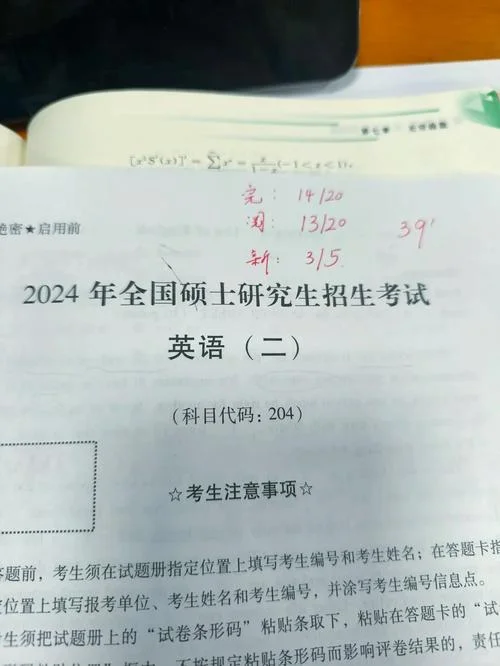 [x³S'(x)]' = ∑xⁿ = x/(1-x) (-1<x<1),
完: 14/20
阅: 13/20
39'
新: 3/5
绝密★启用前
2024 年全国硕士研究生招生考试
英语（二）
（科目代码：204）
☆考生注意事项☆
答题前，考生须在试题册指定位置上填写考生编号和考生姓名；在答题卡指
定位置上填写报考单位、考生姓名和考生编号，并涂写考生编号信息点。
考生须把试题册上的“试卷条形码”粘贴条取下，粘贴在答题卡的“试
框中。不按规定粘贴条形码而影响评卷结果的，责任